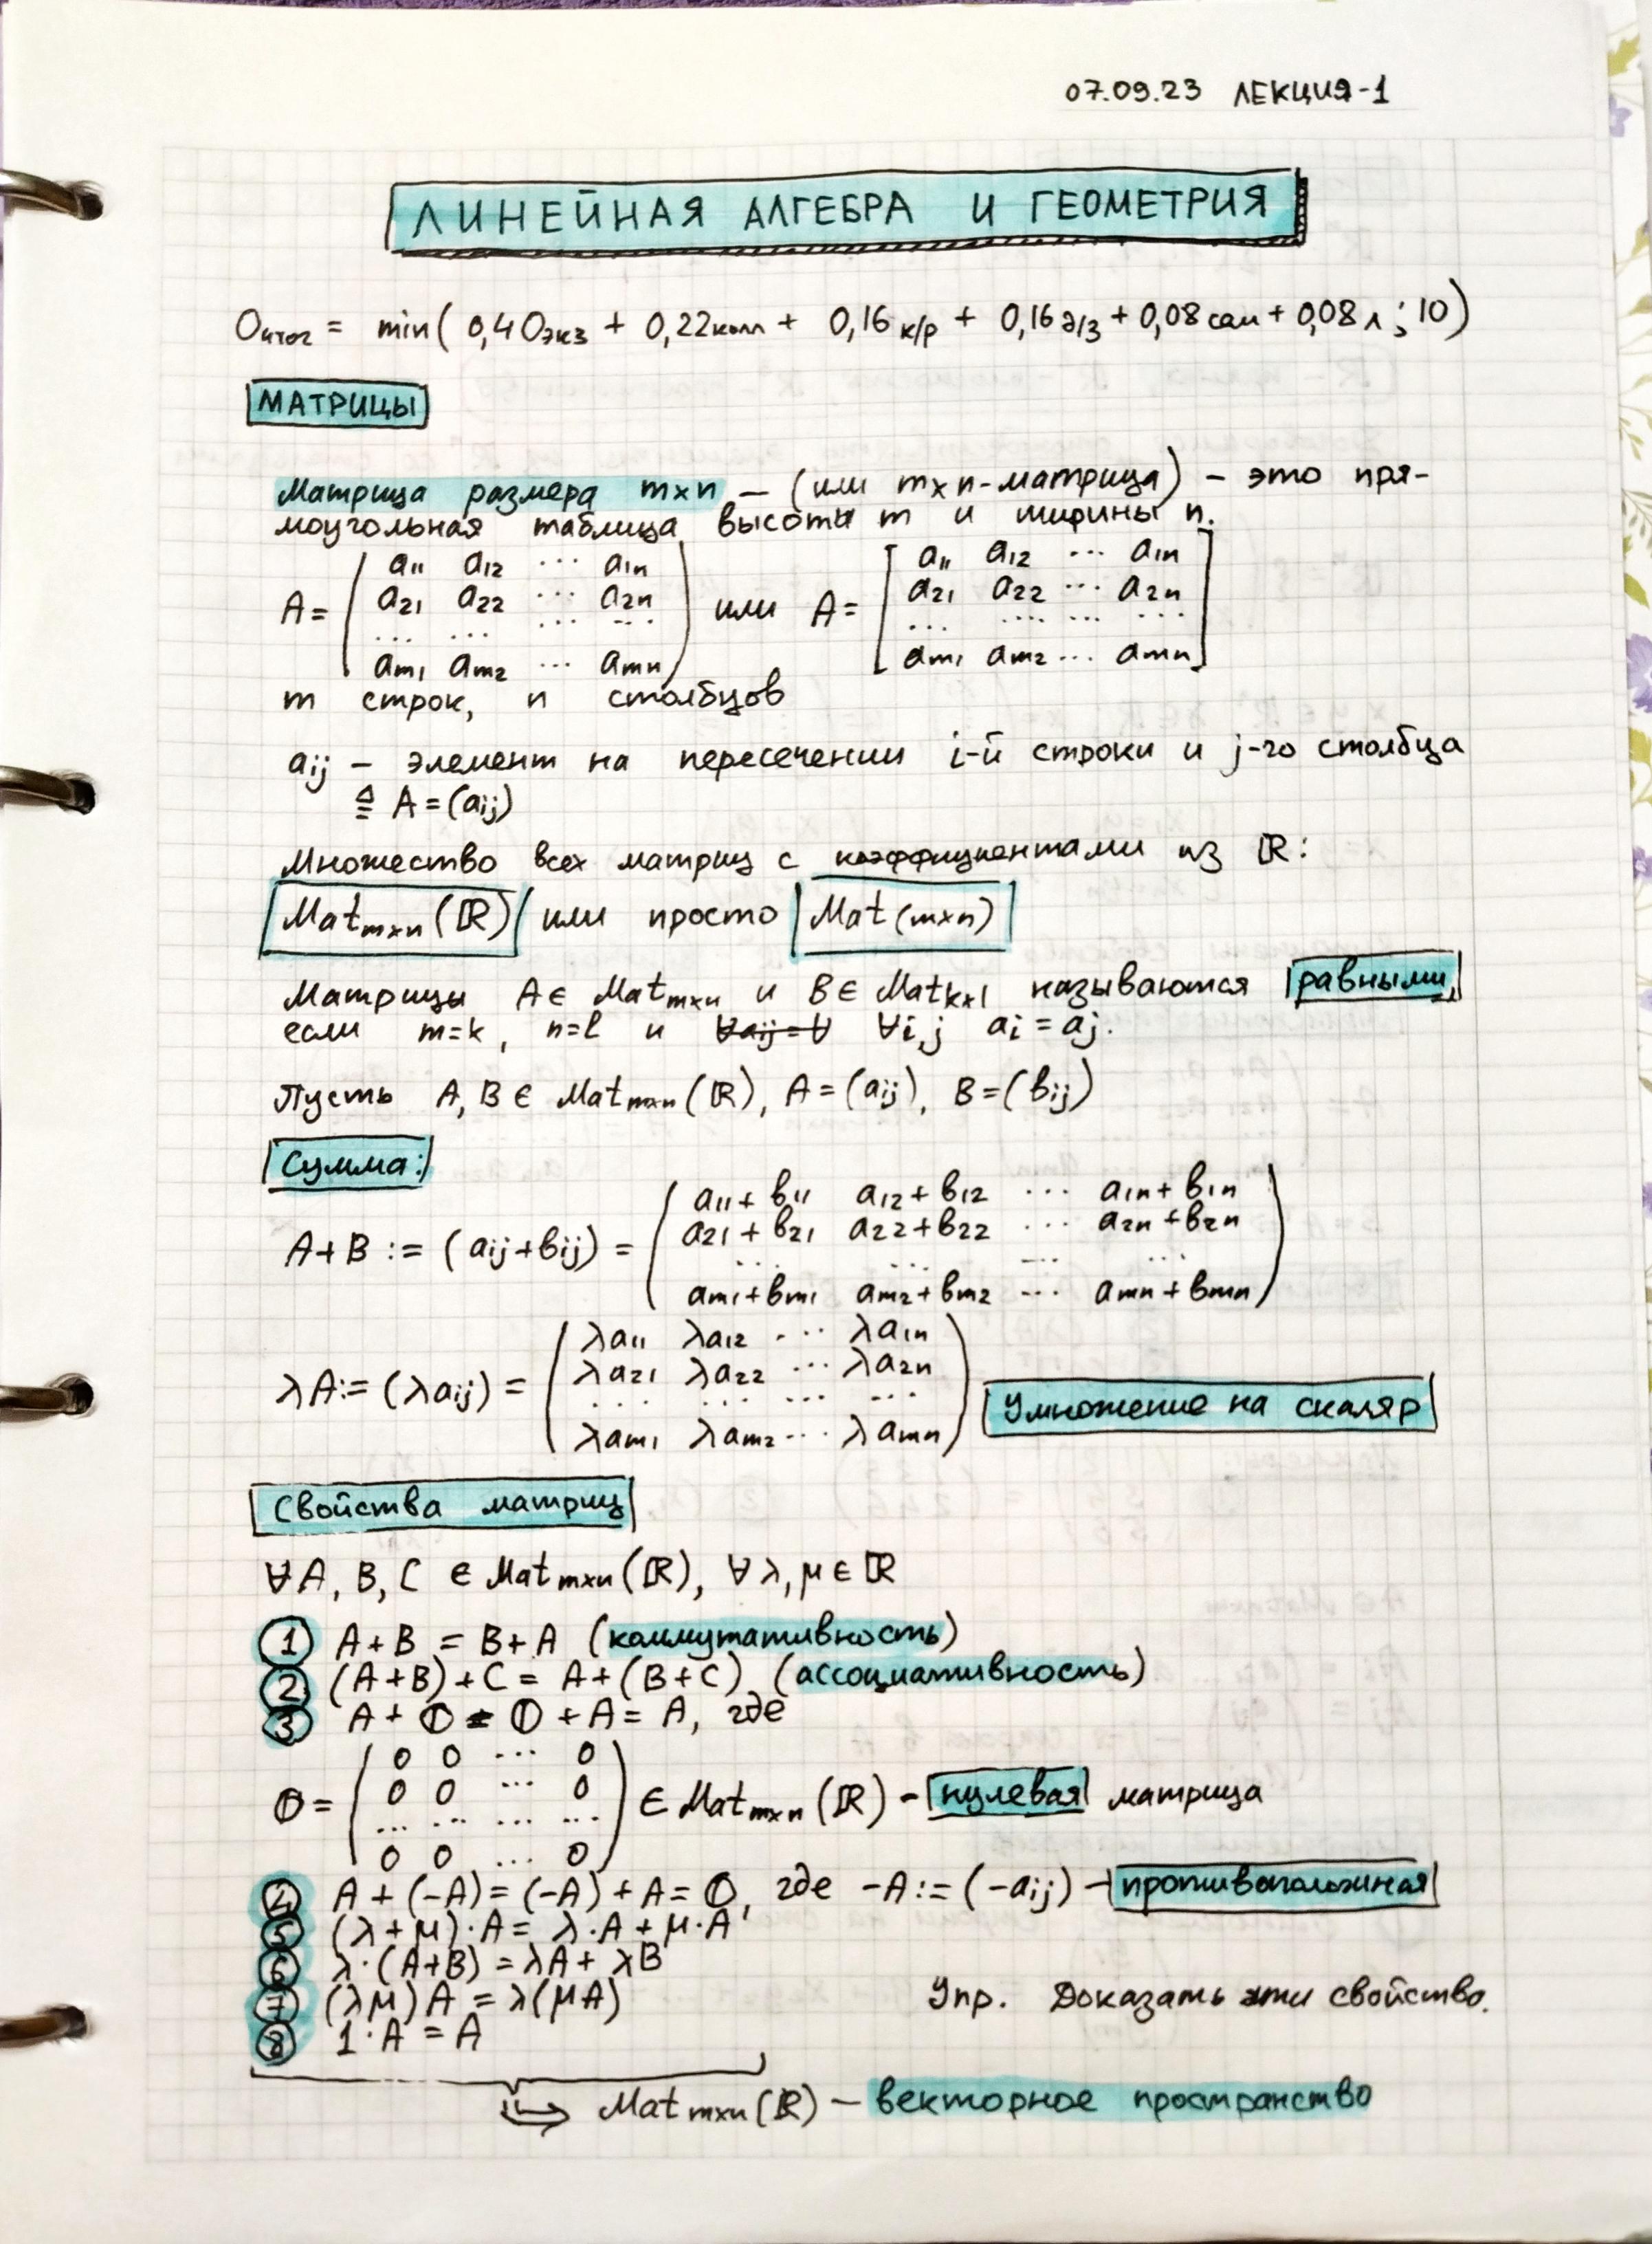 07.09.23 ЛЕКЦИЯ-1
ЛИНЕЙНАЯ АЛГЕБРА И ГЕОМЕТРИЯ
Oитог = min( 0,4 Oэкз + 0,22колл + 0,16 к/р + 0,16 д/з + 0,08 сам + 0,08 л ; 10)
МАТРИЦЫ
Матрица размера m×n – (или m×n-матрица) – это пря-
моугольная таблица высоты m и ширины n.
a11 a12 ... a1n a11 a12 ... a1n
a21 a22 ... a2n a21 a22 ... a2n
A= или A=
... ... ... ... ... ... ... ...
am1 am2 ... amn am1 am2 ... amn
m строк, n столбцов
aij – элемент на пересечении i-й строки и j-го столбца
≙ A=(aij)
Множество всех матриц с коэффициентами из ℝ:
Matm×n(ℝ) или просто Mat(m×n)
Матрицы A∈ Matm×n и B∈ Matk×l называются равными,
если m=k, n=l и ∀aij=∀ ∀i,j ai = aj.
Пусть A, B ∈ Matm×n(ℝ), A=(aij), B=(bij)
Сумма:
a11+b11 a12+b12 ... a1n+b1n
a21+b21 a22+b22 ... a2n+b2n
A+B := (aij+bij) =
... ... ... ...
am1+bm1 am2+bm2 ... amn+bmn
λa11 λa12 ... λa1n
λa21 λa22 ... λa2n
λA:= (λaij) = Умножение на скаляр
... ... ... ...
λam1 λam2 ... λamn
Свойства матриц
∀A, B, C ∈ Matm×n(ℝ), ∀λ,μ∈ℝ
1 A+B = B+A (коммутативность)
2 (A+B)+C = A+(B+C) (ассоциативность)
3 A+0 = 0+A = A, где
0 0 ... 0
0 0 ... 0
0= ∈ Matm×n(ℝ) - нулевая матрица
... ... ... ...
0 0 ... 0
4 A+(-A)=(-A)+A=0, где -A:=(-aij) – противоположная
5 (λ+μ)·A= λ·A+μ·A
6 λ·(A+B)=λA+λB
7 (λμ)A = λ(μA) Упр. Доказать эти свойство.
8 1·A = A
↪ Matm×n(ℝ) – векторное пространство